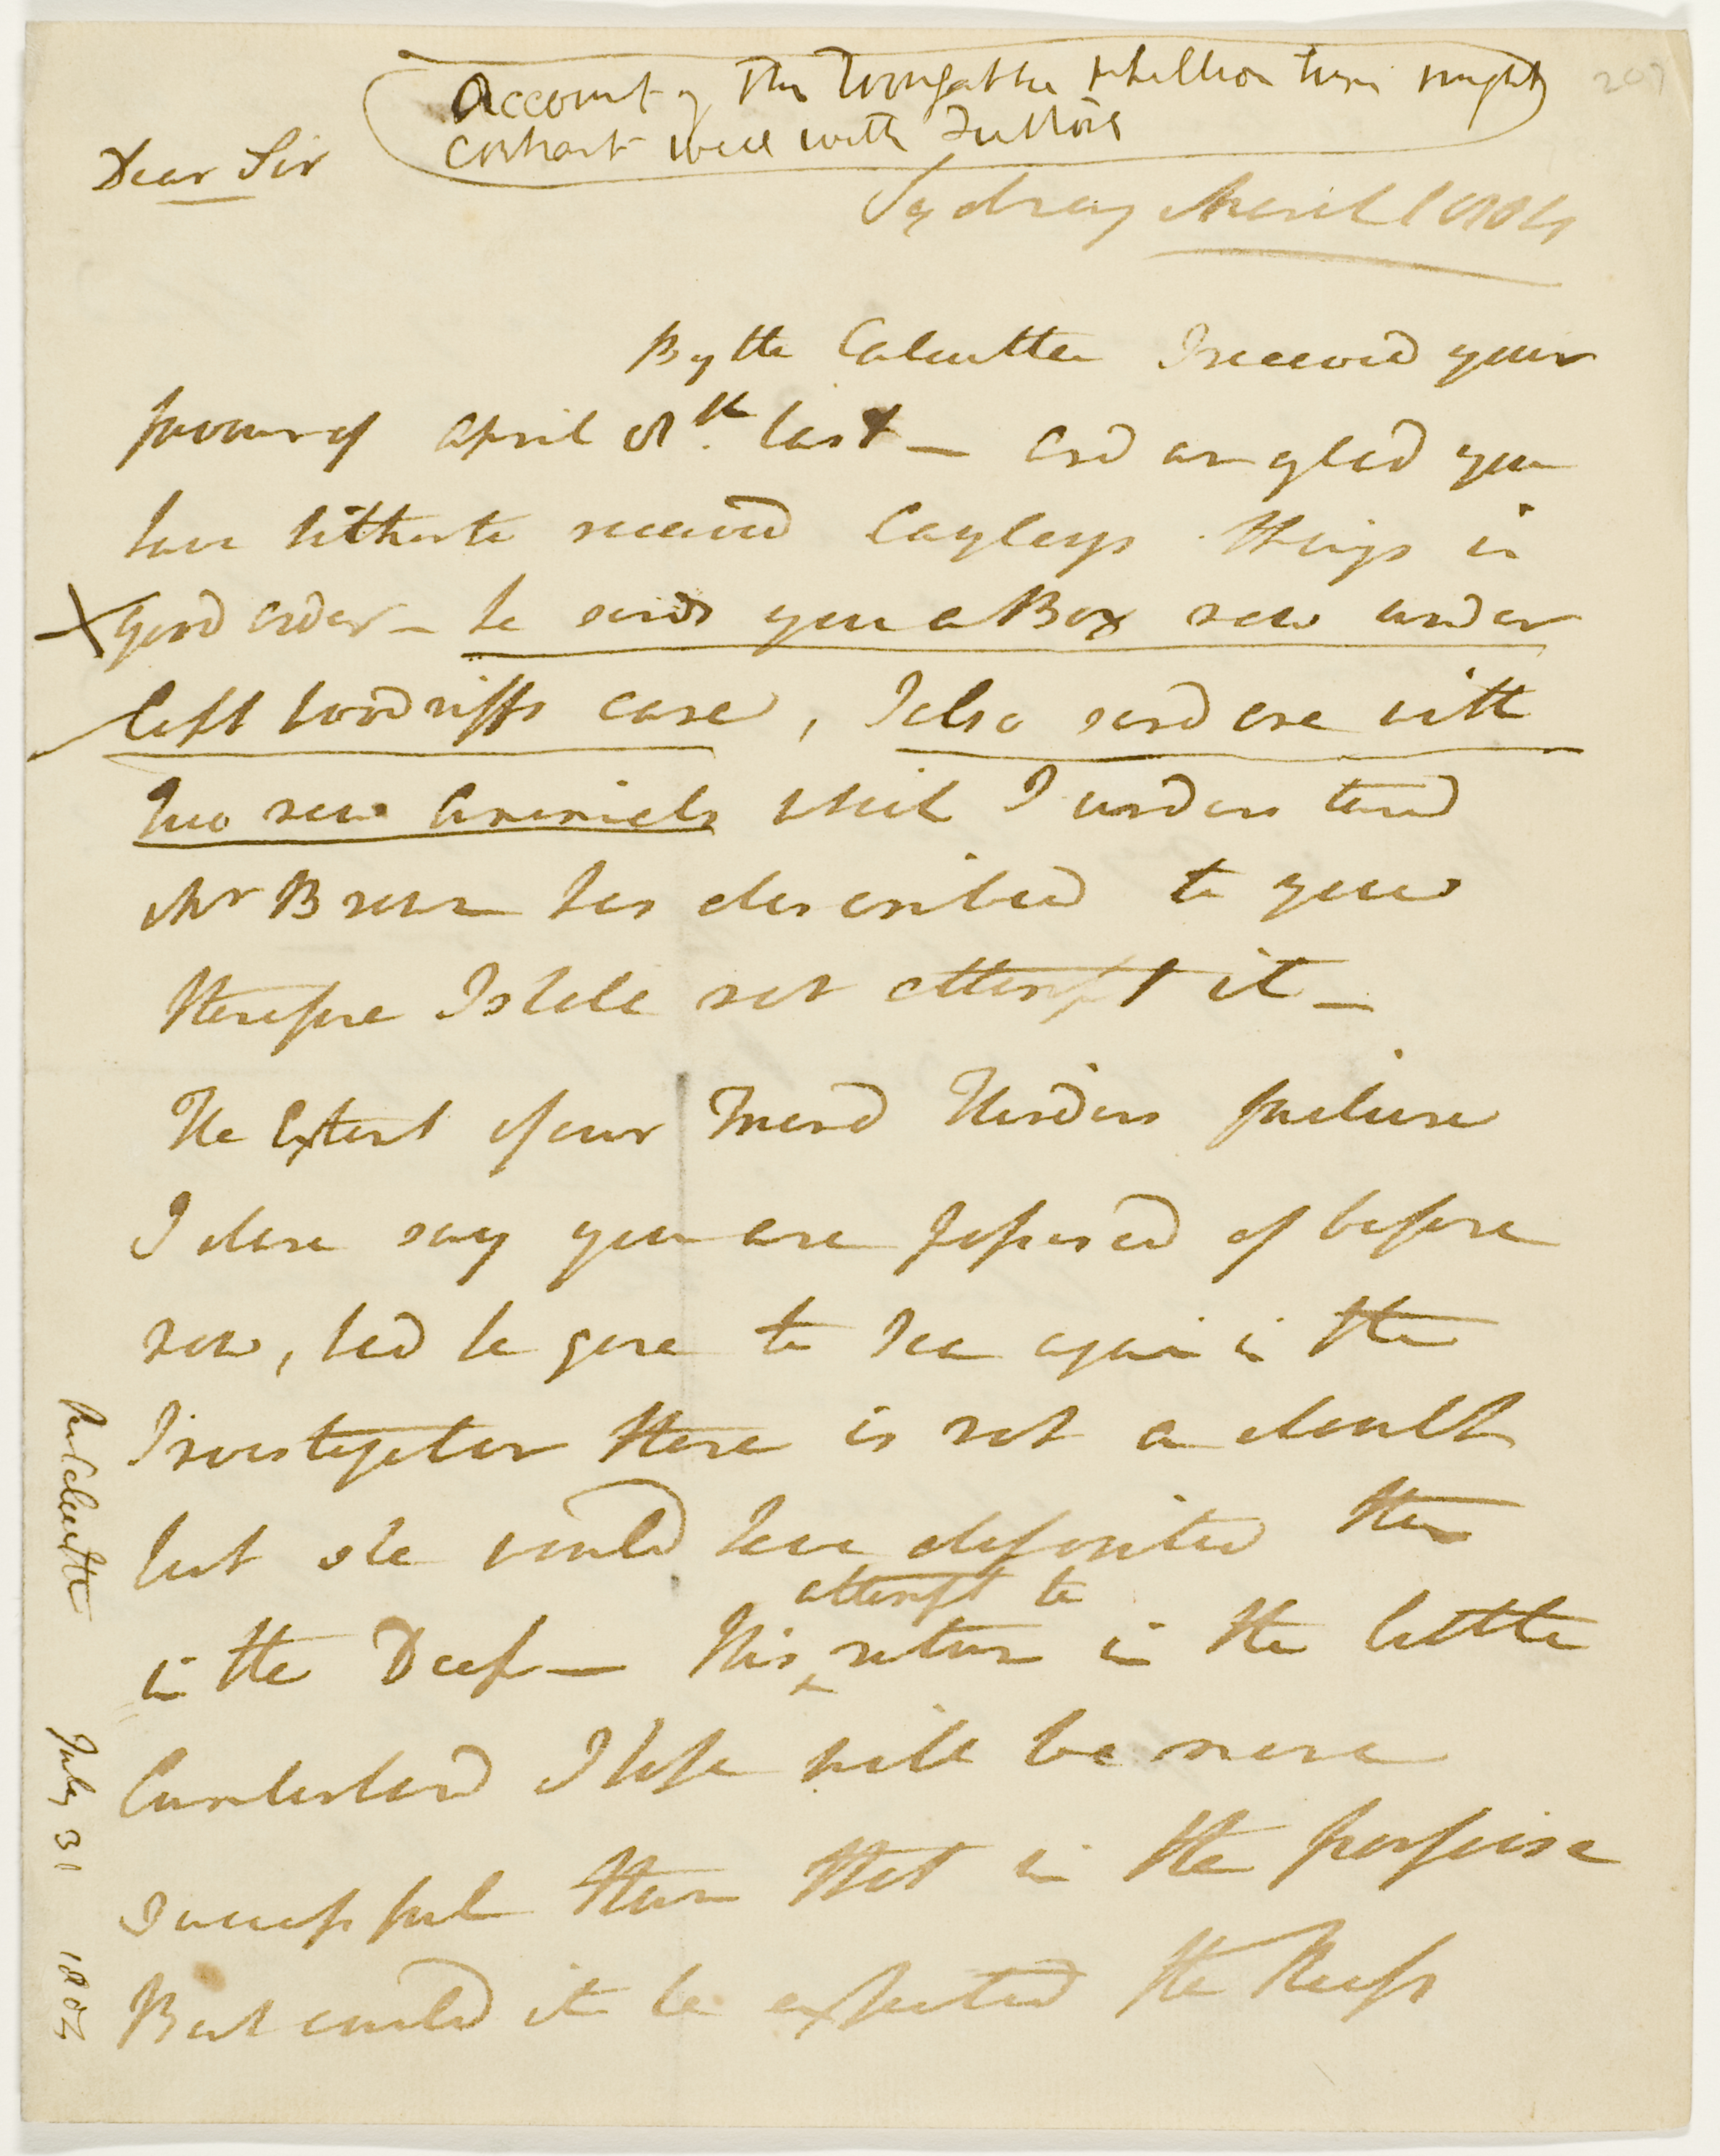 Account of the Toongabbie rebellion turn might
contrast well with Suttors
207
Dear Sir
Sydney March 1804
By the Calcutta I received your
favour of April 8th last — and am glad you
have hitherto received Cayleys things in
good order — he sends you a Box now under
Capt Woodriffs care, I also send one with
Two new Animals which I understand
Mr Brown has described to you
therefore I shall not attempt it —
The Extent of our Friend Flinders failure
I dare say you are possessed of before
now, had he gone to Sea again in the
Investigator there is not a doubt
but she would have deposited them
in the Deep — His attempt to return in the little
Cumberland I hope will be more
successful than that in the porpoise
But could it be expected the Reefs
pr Calcutta July 31 1804